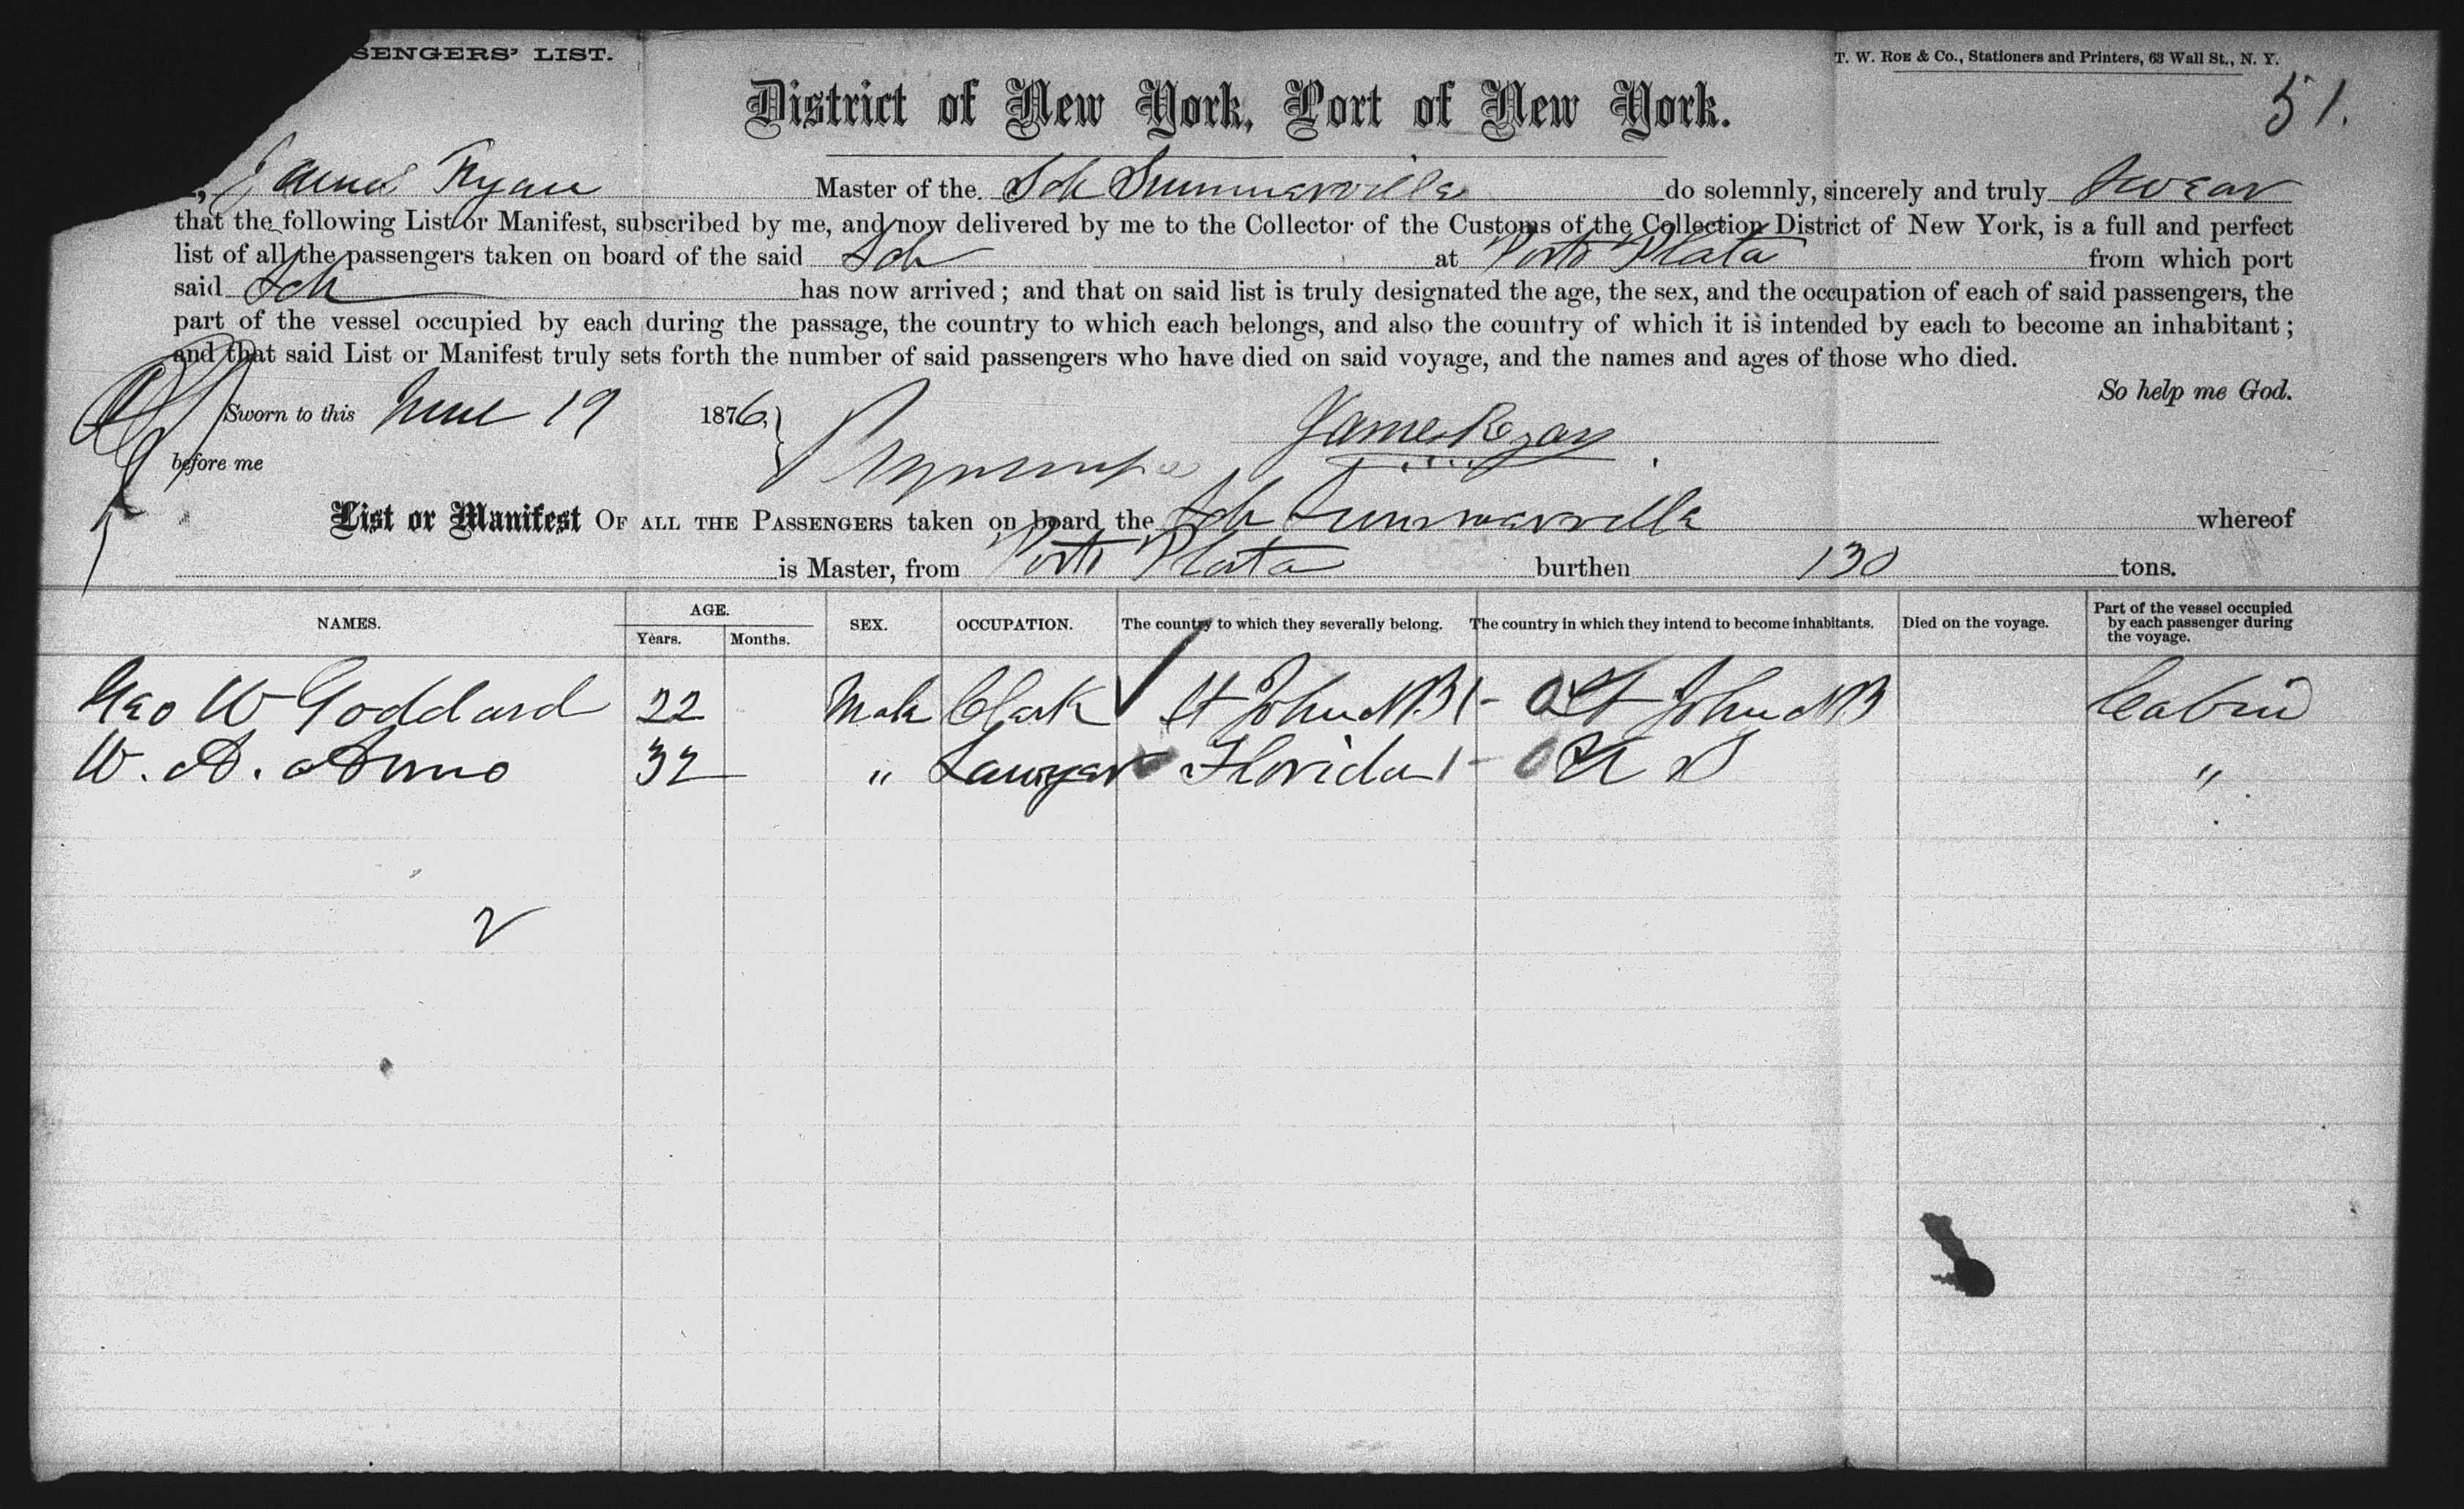 SENGERS' LIST.
T. W. Roe & Co., Stationers and Printers, 63 Wall St., N. Y.
51.
District of New York, Port of New York.
James Ryan Master of the Sch Summerville do solemnly, sincerely and truly swear
that the following List or Manifest, subscribed by me, and now delivered by me to the Collector of the Customs of the Collection District of New York, is a full and perfect
list of all the passengers taken on board of the said Sch at Porto Plata from which port
said Sch has now arrived; and that on said list is truly designated the age, the sex, and the occupation of each of said passengers, the
part of the vessel occupied by each during the passage, the country to which each belongs, and also the country of which it is intended by each to become an inhabitant;
and that said List or Manifest truly sets forth the number of said passengers who have died on said voyage, and the names and ages of those who died.
So help me God.
Sworn to this June 19 1876,
James Ryan
before me
List or Manifest OF ALL THE PASSENGERS taken on board the Sch Summerville whereof
is Master, from Porto Plata burthen 130 tons.
NAMES. AGE. Years. Months. SEX. OCCUPATION. The country to which they severally belong. The country in which they intend to become inhabitants. Died on the voyage. Part of the vessel occupied by each passenger during the voyage.
Geo W Goddard 22 Male Clerk St John NB 1- St John NB Cabin
W. A. 32 " Lawyer Florida 1- U S "
2